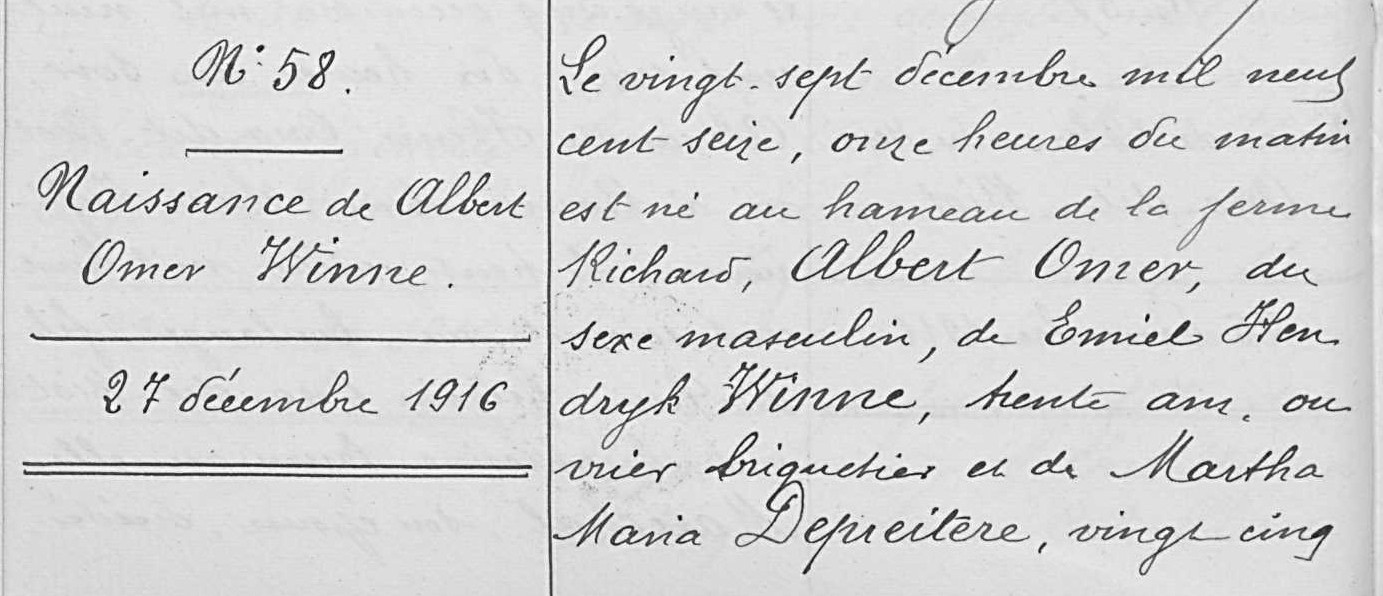 N° 58.
Naissance de Albert
Omer Winne.
27 décembre 1916
Le vingt-sept décembre mil neuf
cent seize, onze heures du matin
est né au hameau de la ferme
Richard, Albert Omer, du
sexe masculin, de Emiel Hen
dryk Winne, trente ans, ou
vrier briquetier et de Martha
Maria Depreitere, vingt cinq